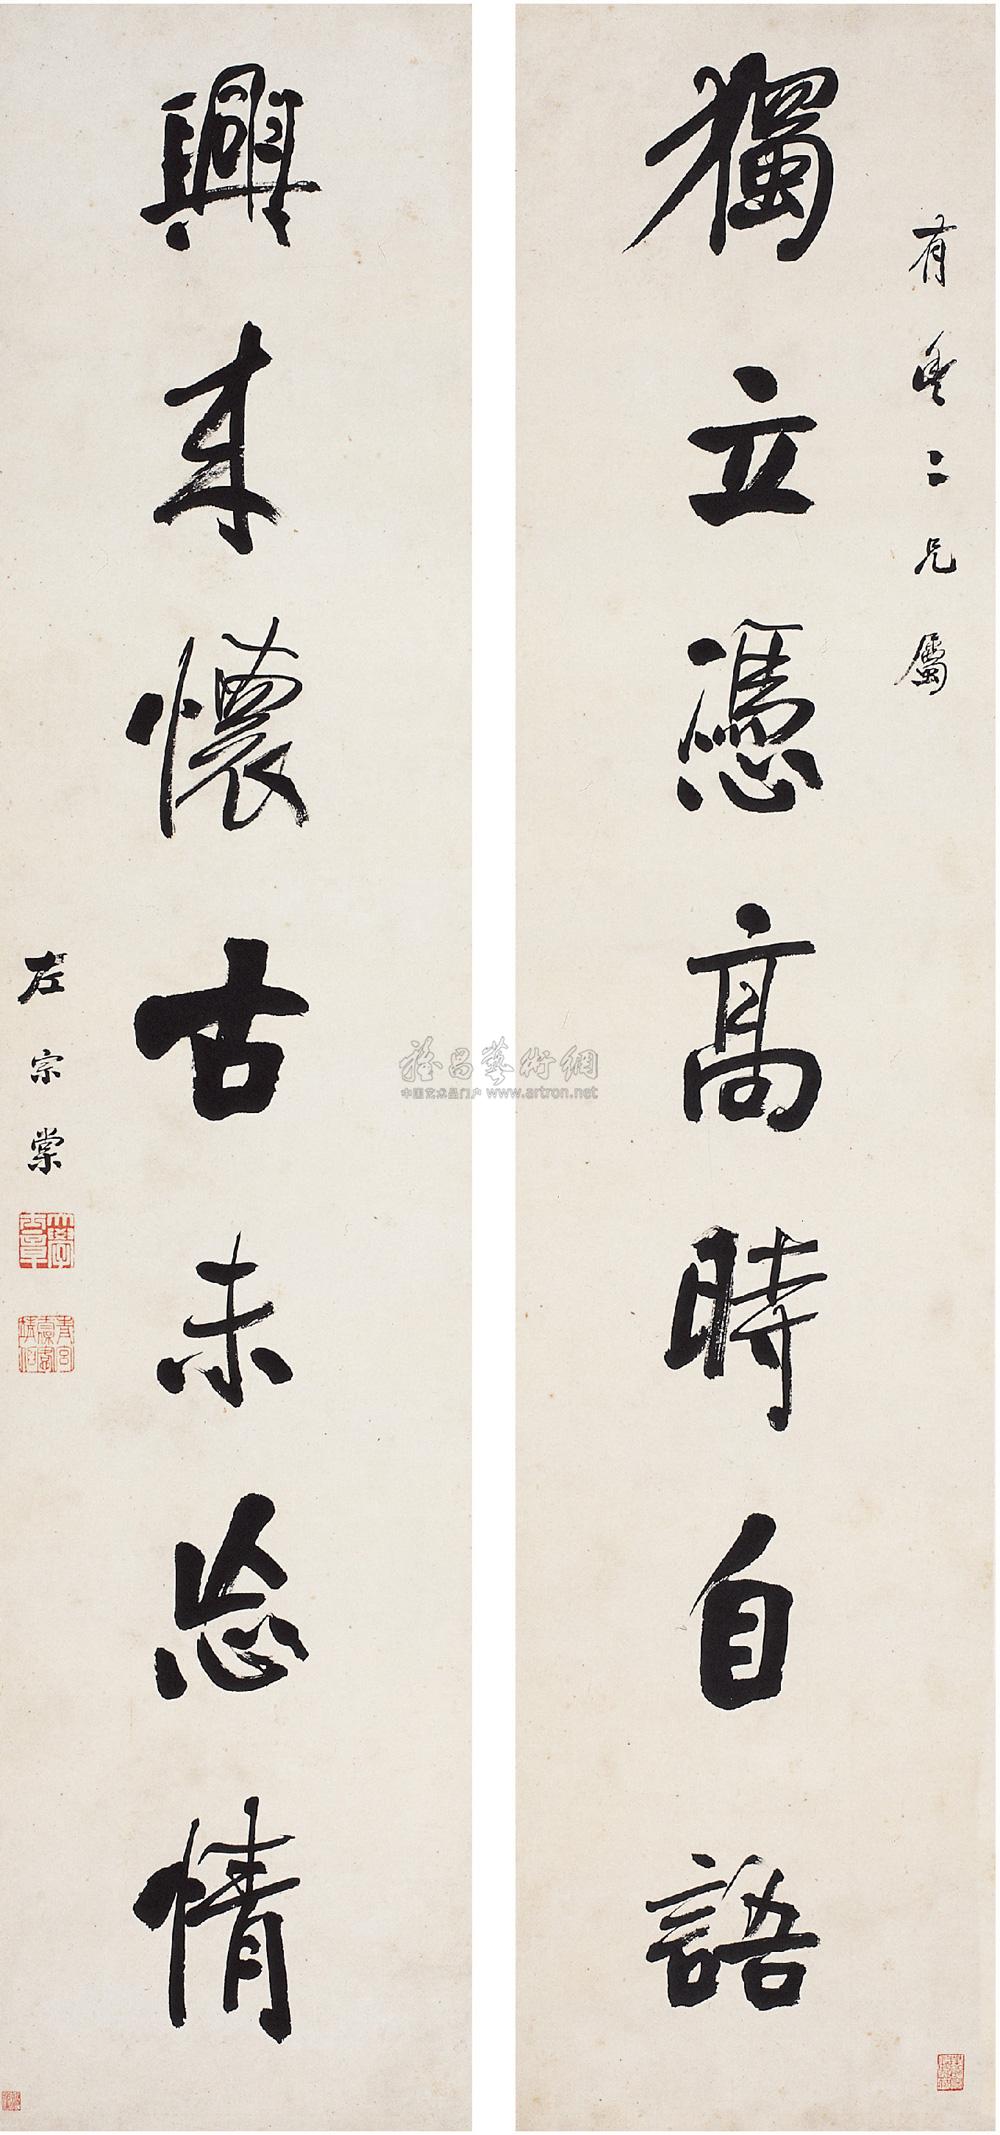 獨立憑高時自語
有奎二兄屬
興來懷古未忘情
左宗棠
雅昌藝術網
中国艺术品门户 www.artron.net